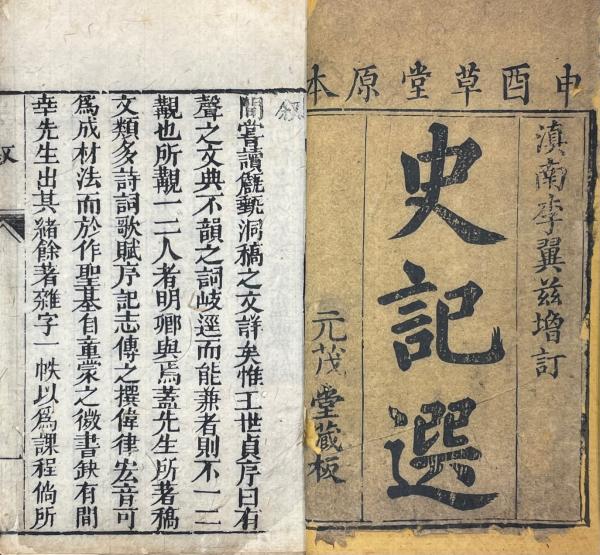 申酉草堂原本
滇南李翼兹增訂
史記選
元茂堂蔵板
敘
間嘗讀甔甀洞稿之文詳矣惟王世貞序曰有
聲之文典不韻之詞岐逕而能兼者則不一二
觀也所觀一二人者明卿與焉蓋先生所著稿
文類多詩詞歌賦序記志傳之撰偉律宏音可
爲成材法而於作聖基自童蒙之微書缺有間
幸先生出其緒餘著雜字一帙以爲課程倘所